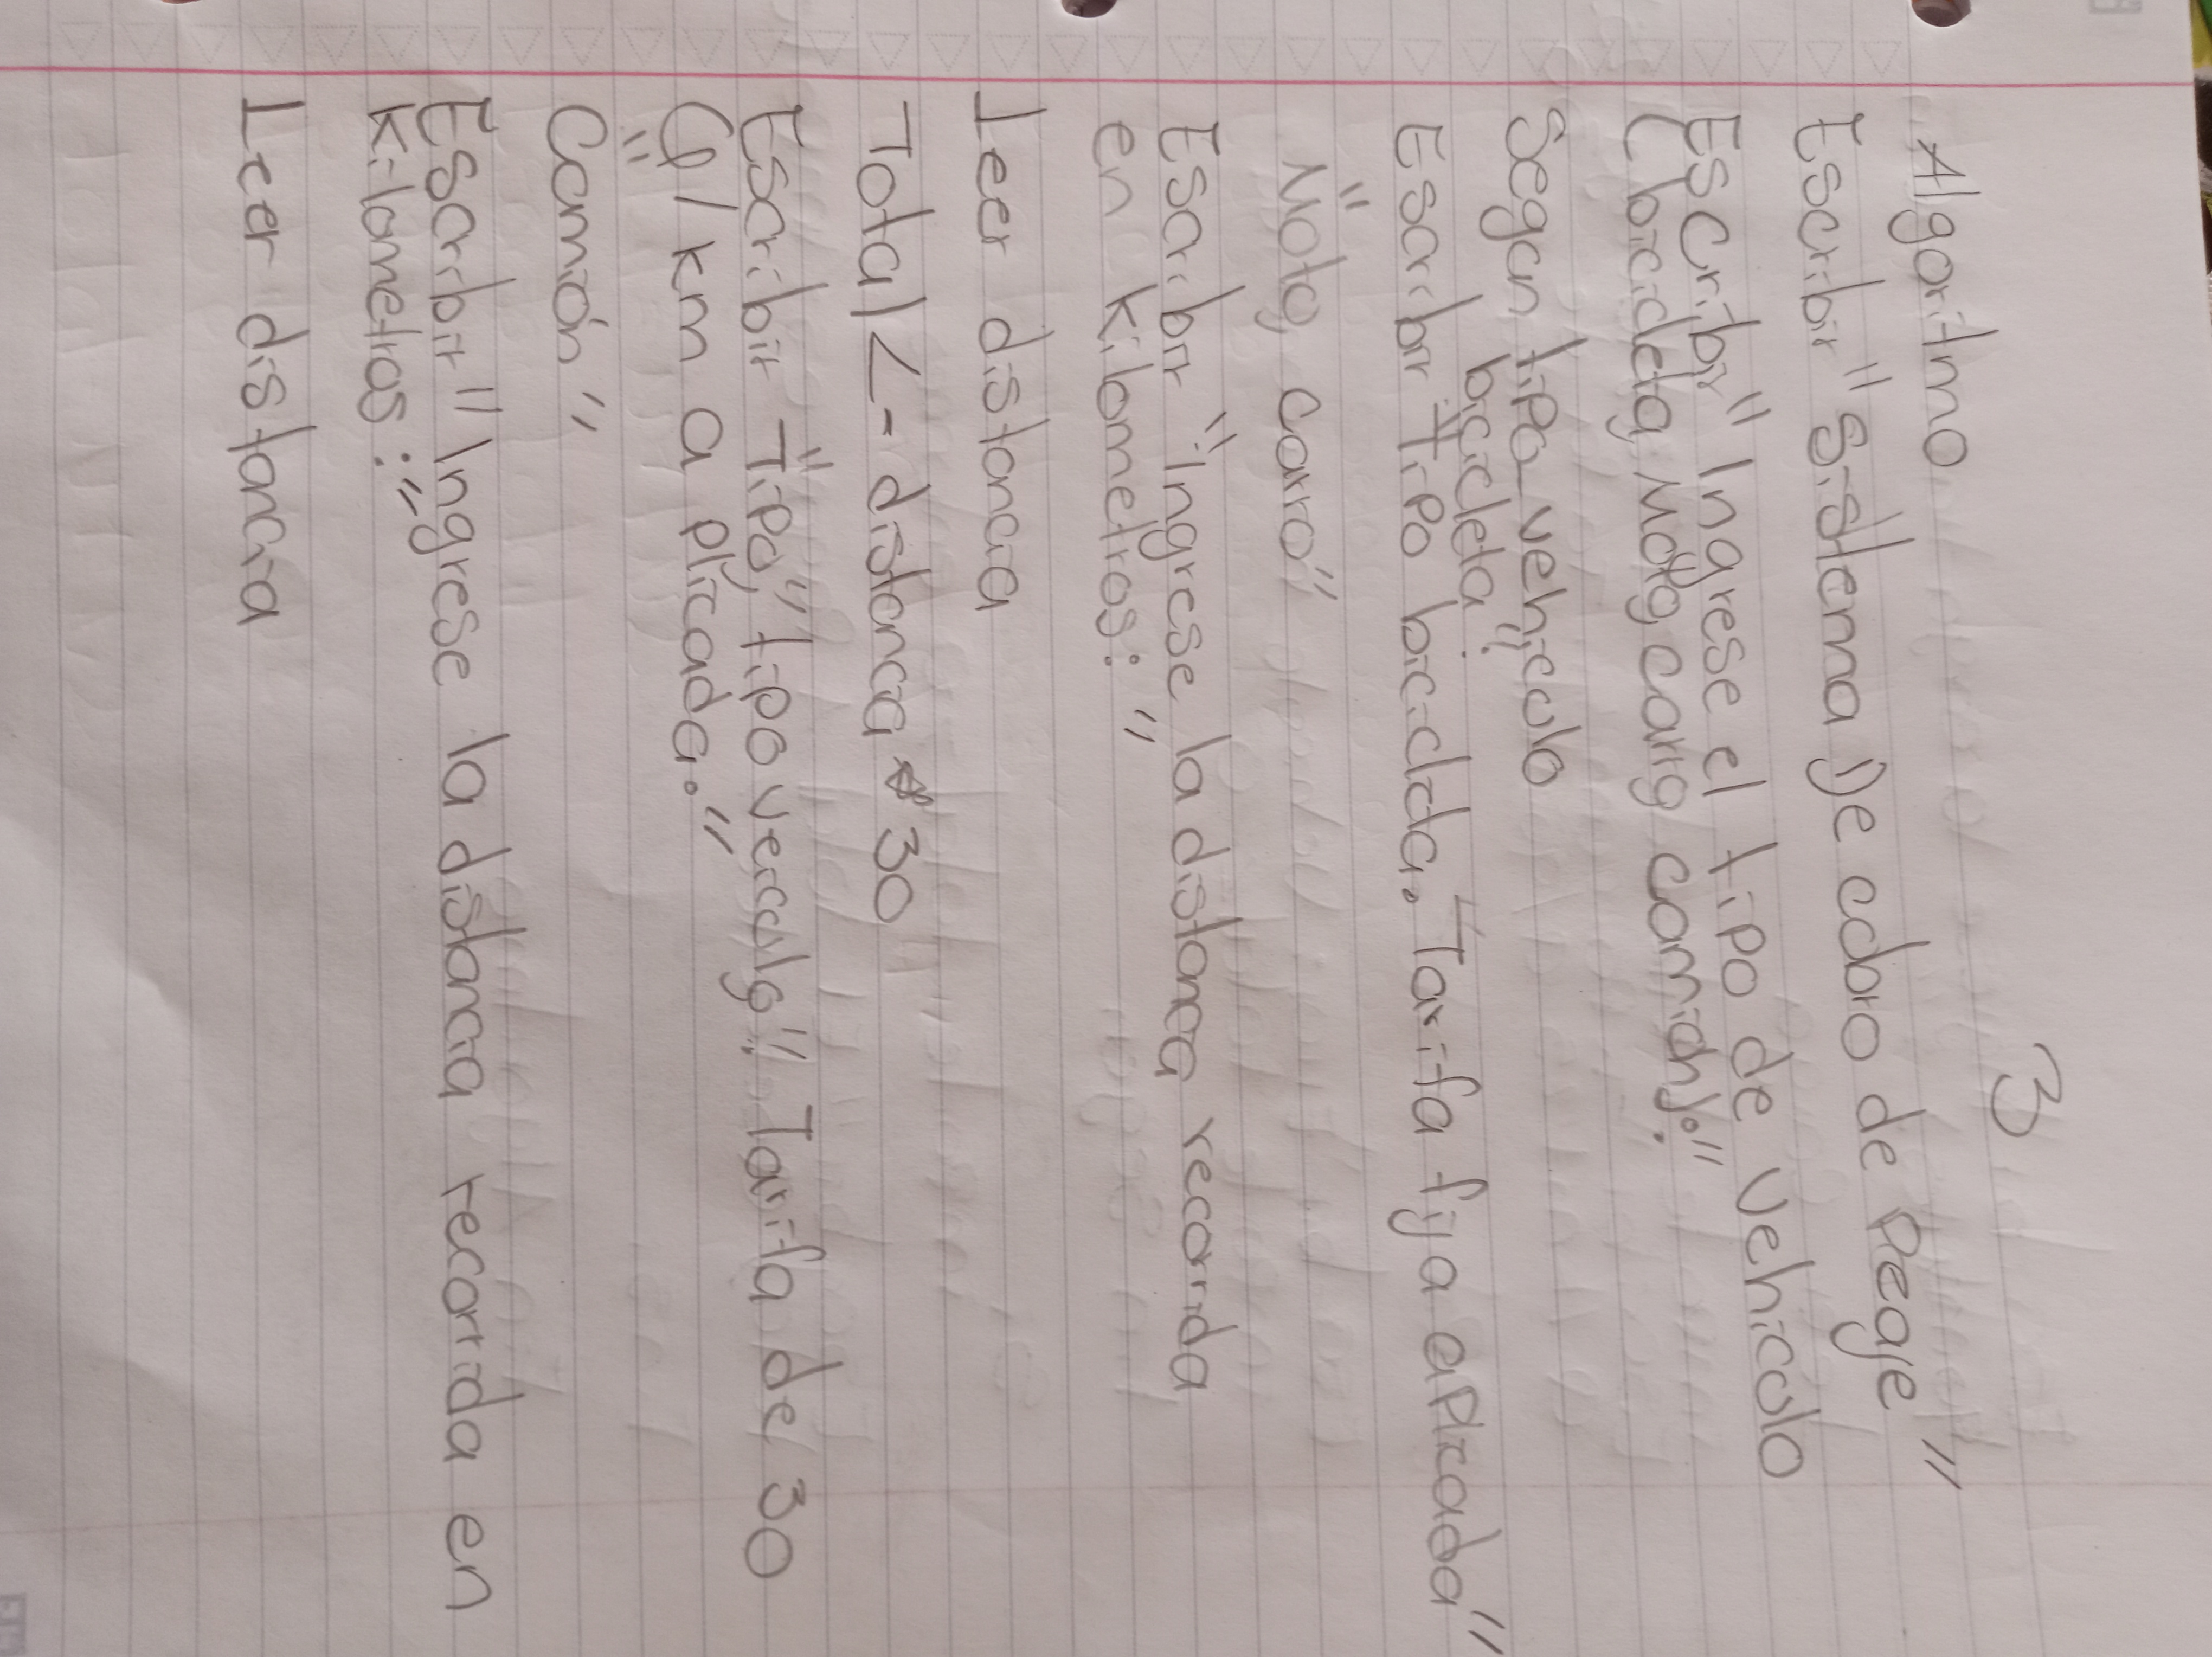 3
Algoritmo
Escribir "Sistema De cobro de Peaje"
Escribir "Ingrese el tipo de vehiculo
(bicicleta, Moto, carro, camión):"
Segun tipo vehiculo
bicicleta:"
Escribir Tipo bicicleta. Tarifa fija aplicada"
"Moto, carro"
Escribir "Ingrese la distancia recorrida
en kilometros:"
Leer distancia
Total <- distancia * 30
Escribir "Tipo," tipo veiculo," Tarifa de 30
₡/km a plicada."
"Camión"
Escribir "Ingrese la distancia recorrida en
Kilometros:"
Leer distancia